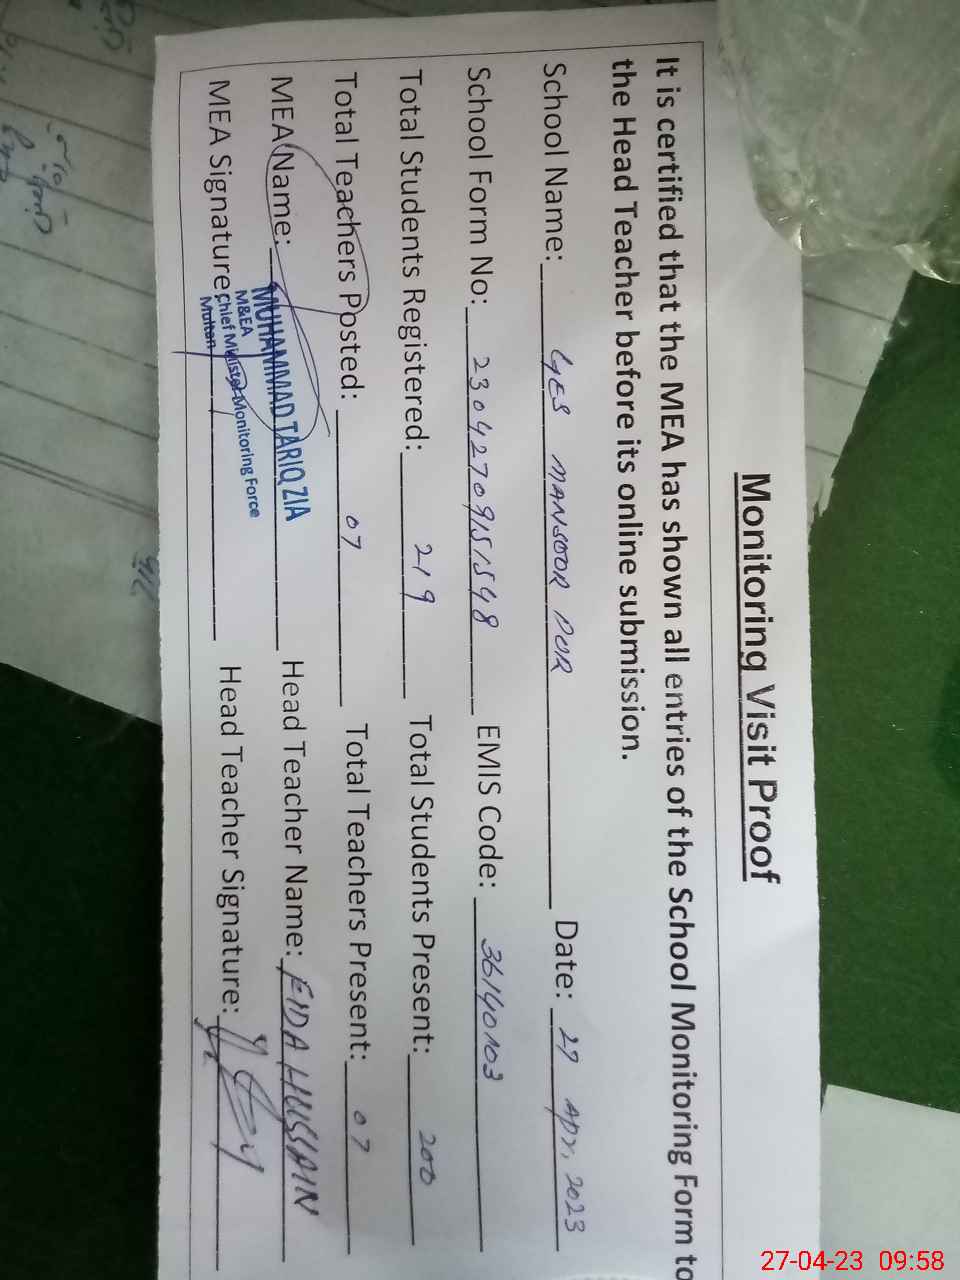 Monitoring Visit Proof
It is certified that the MEA has shown all entries of the School Monitoring Form to
the Head Teacher before its online submission.
School Name: GES MANSOOR PUR Date: 27 Apr, 2023
School Form No: 23042709151548 EMIS Code: 36140103
Total Students Registered: 219 Total Students Present: 200
Total Teachers Posted: 07 Total Teachers Present: 07
MEA Name: MUHAMMAD TARIQ ZIA Head Teacher Name: FIDA HUSSAIN
M&EA
MEA Signature: Chief Minister Monitoring Force Head Teacher Signature:
Multan
27-04-23 09:58